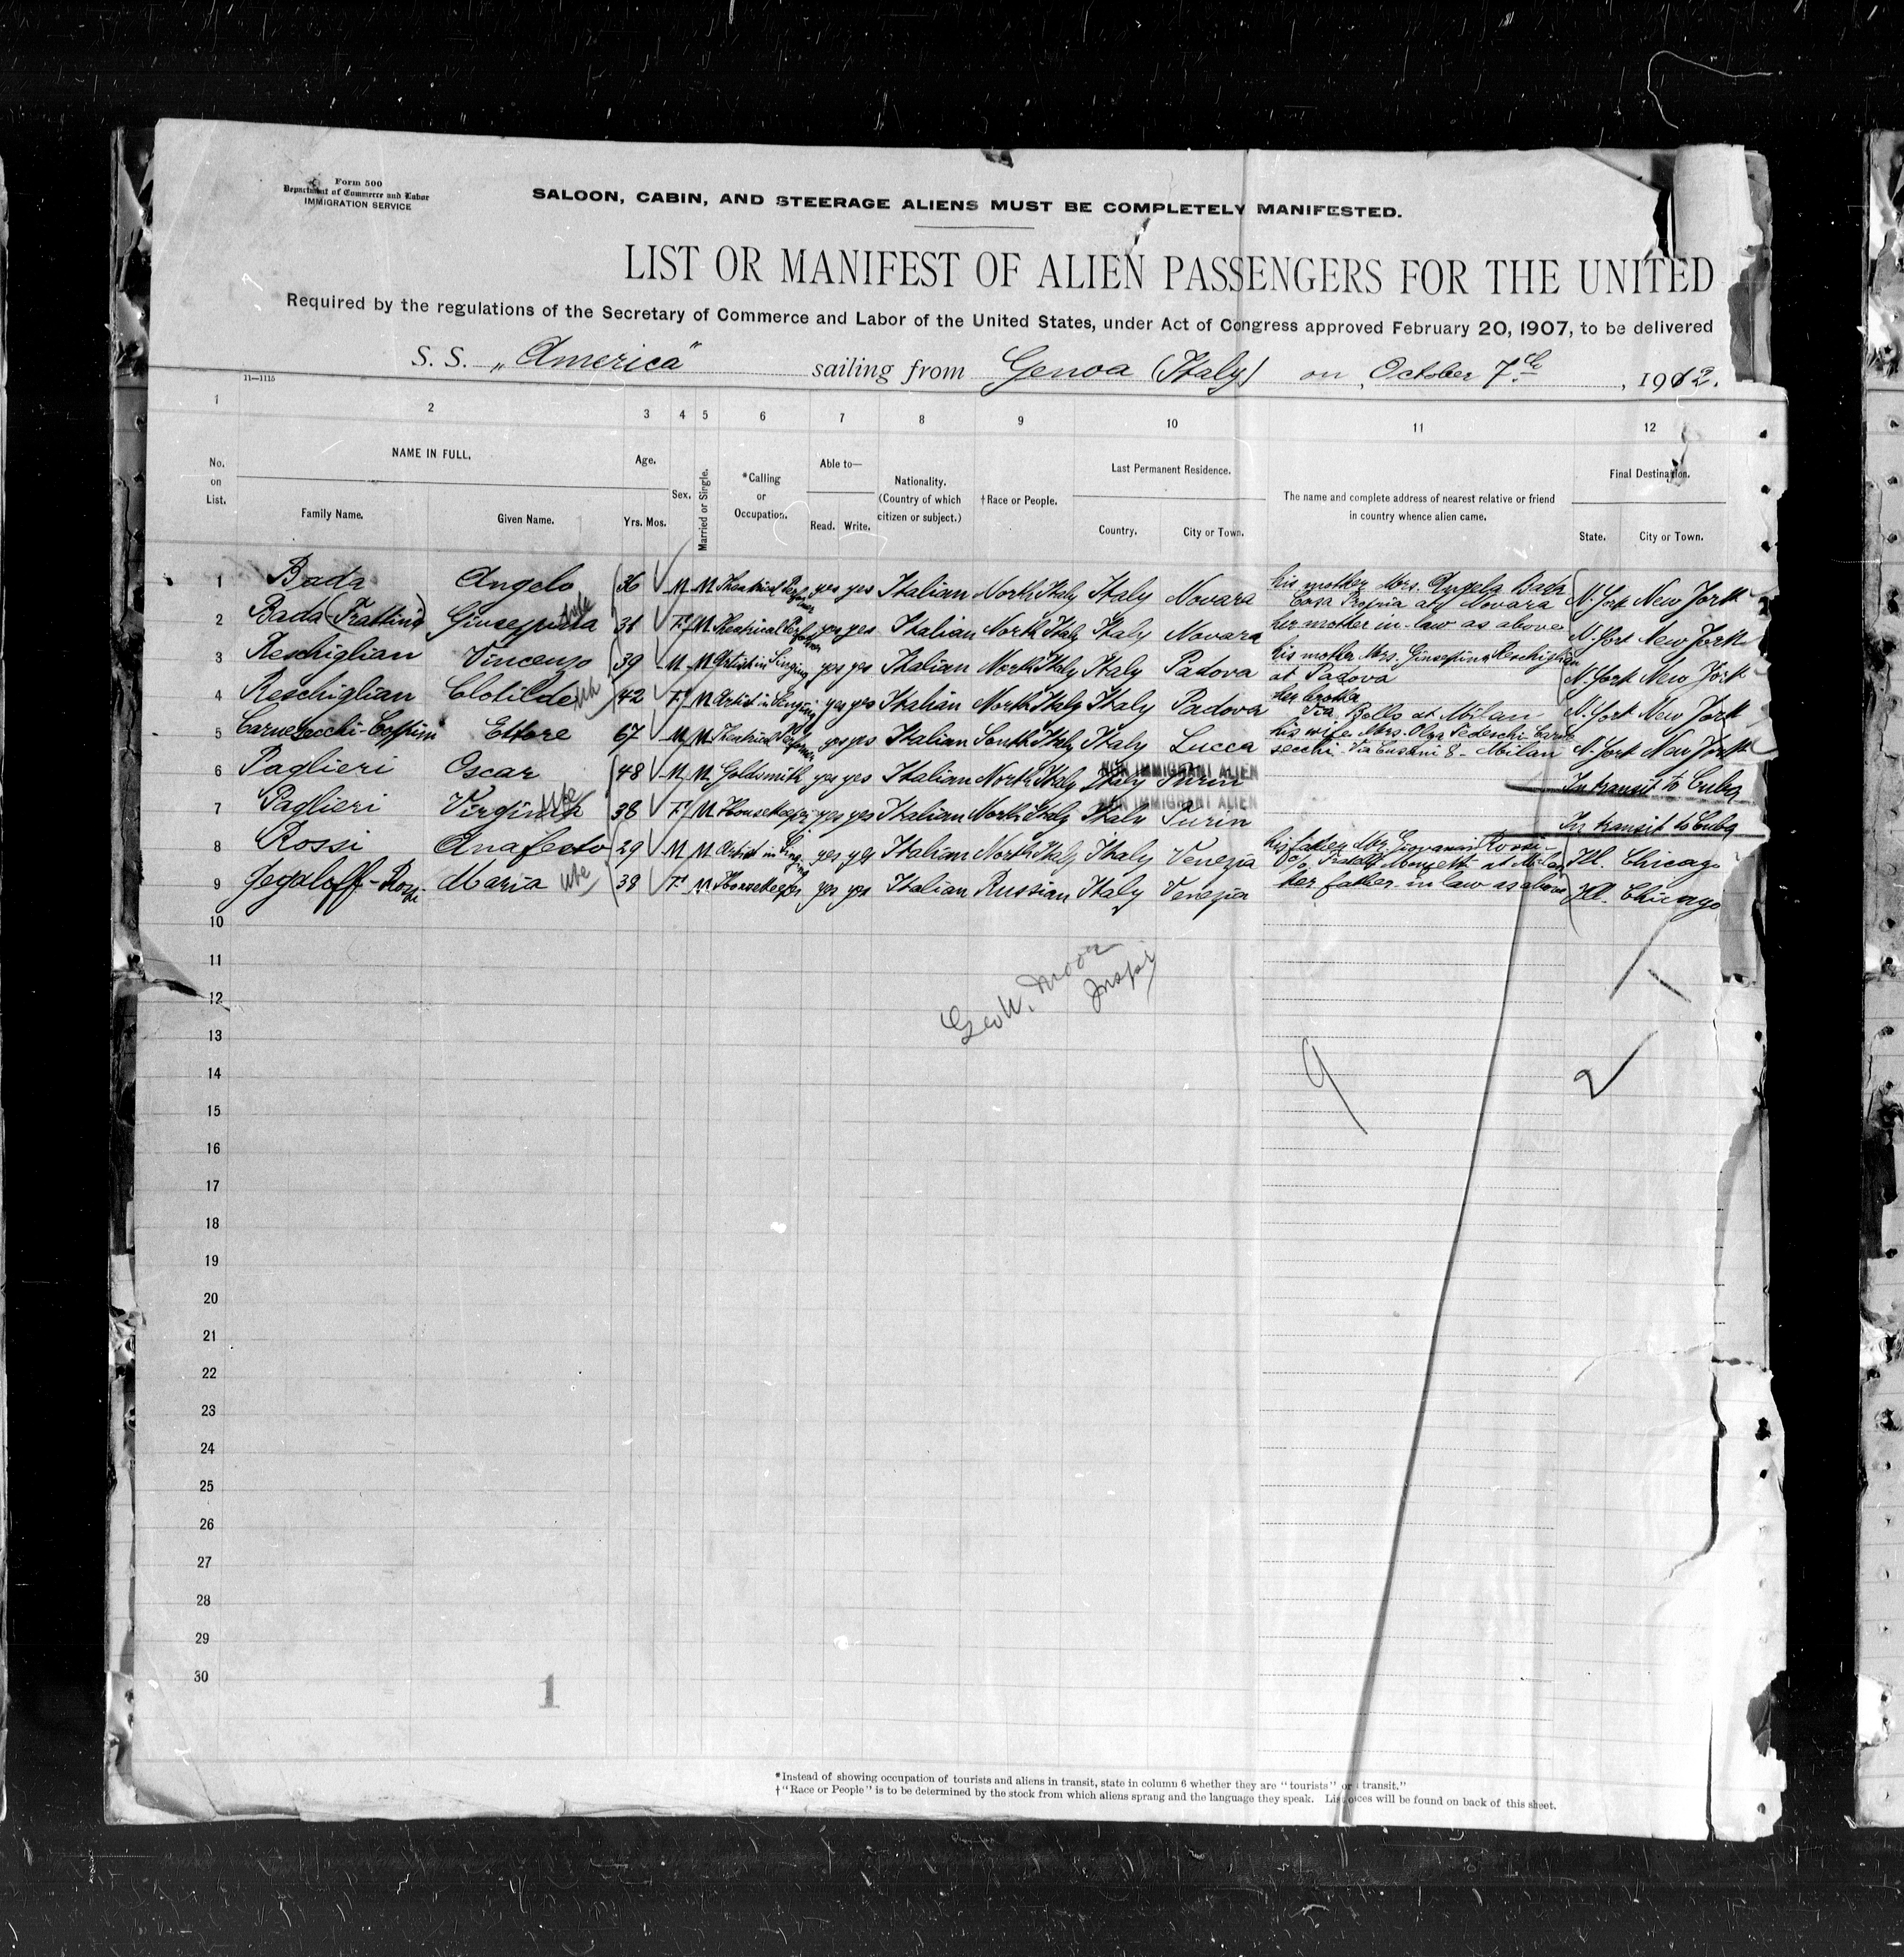 Form 500
Department of Commerce and Labor
IMMIGRATION SERVICE
SALOON, CABIN, AND STEERAGE ALIENS MUST BE COMPLETELY MANIFESTED.
LIST OR MANIFEST OF ALIEN PASSENGERS FOR THE UNITED
Required by the regulations of the Secretary of Commerce and Labor of the United States, under Act of Congress approved February 20, 1907, to be delivered
S. S. „America" sailing from Genoa (Italy) on October 7th, 1912.
11—1115
1 2 3 4 5 6 7 8 9 10 11 12
No. on List. NAME IN FULL. Family Name. Given Name. Age. Yrs. Mos. Sex. Married or Single. *Calling or Occupation. Able to— Read. Write. Nationality. (Country of which citizen or subject.) †Race or People. Last Permanent Residence. Country. City or Town. The name and complete address of nearest relative or friend in country whence alien came. Final Destination. State. City or Town.
1 Bada Angelo 36 M M Theatrical Performer yes yes Italian North Italy Italy Novara his mother Mrs. Angela Bada Casa Propria at Novara N. York New York
2 Bada (Frattini) wife 31 F M Theatrical Performer yes yes Italian North Italy Italy Novara her mother in-law as above N. York New York
3 Reschiglian Vincenzo 39 M M Artist in Singing yes yes Italian North Italy Italy Padova his mother Mrs. Giuseppina Reschiglian at Padova N. York New York
4 Reschiglian Clotilde 42 F M Artist in Singing yes yes Italian North Italy Italy Padova her brother Bello at Milan N. York New York
5 Carnesecchi-Coppini Ettore 67 M M Theatrical Performer yes yes Italian South Italy Italy Lucca his wife Mrs. Olga Tedeschi Carnesecchi Via Lusani 8 - Milan N. York New York
6 Paglieri Oscar 48 M M Goldsmith yes yes Italian North Italy Italy Turin NON IMMIGRANT ALIEN In transit to Cuba
7 Paglieri Virginia 38 F M Housekeeper yes yes Italian North Italy Italy Turin NON IMMIGRANT ALIEN In transit to Cuba
8 Rossi Anafesto 29 M M Artist in Singing yes yes Italian North Italy Italy Venezia his father Mr. Giovanni Rossi c/o Fratelli at Milan Ill. Chicago
9 Maria 39 F M Housekeeper yes yes Italian Russian Italy Venezia her father in law as above Ill. Chicago
10
11
Geo W. Moor
Inspr
12
13
9
14
2
15
16
17
18
19
20
21
22
23
24
25
26
27
28
29
30
1
*Instead of showing occupation of tourists and aliens in transit, state in column 6 whether they are "tourists" or transit."
†"Race or People" is to be determined by the stock from which aliens sprang and the language they speak. will be found on back of this sheet.